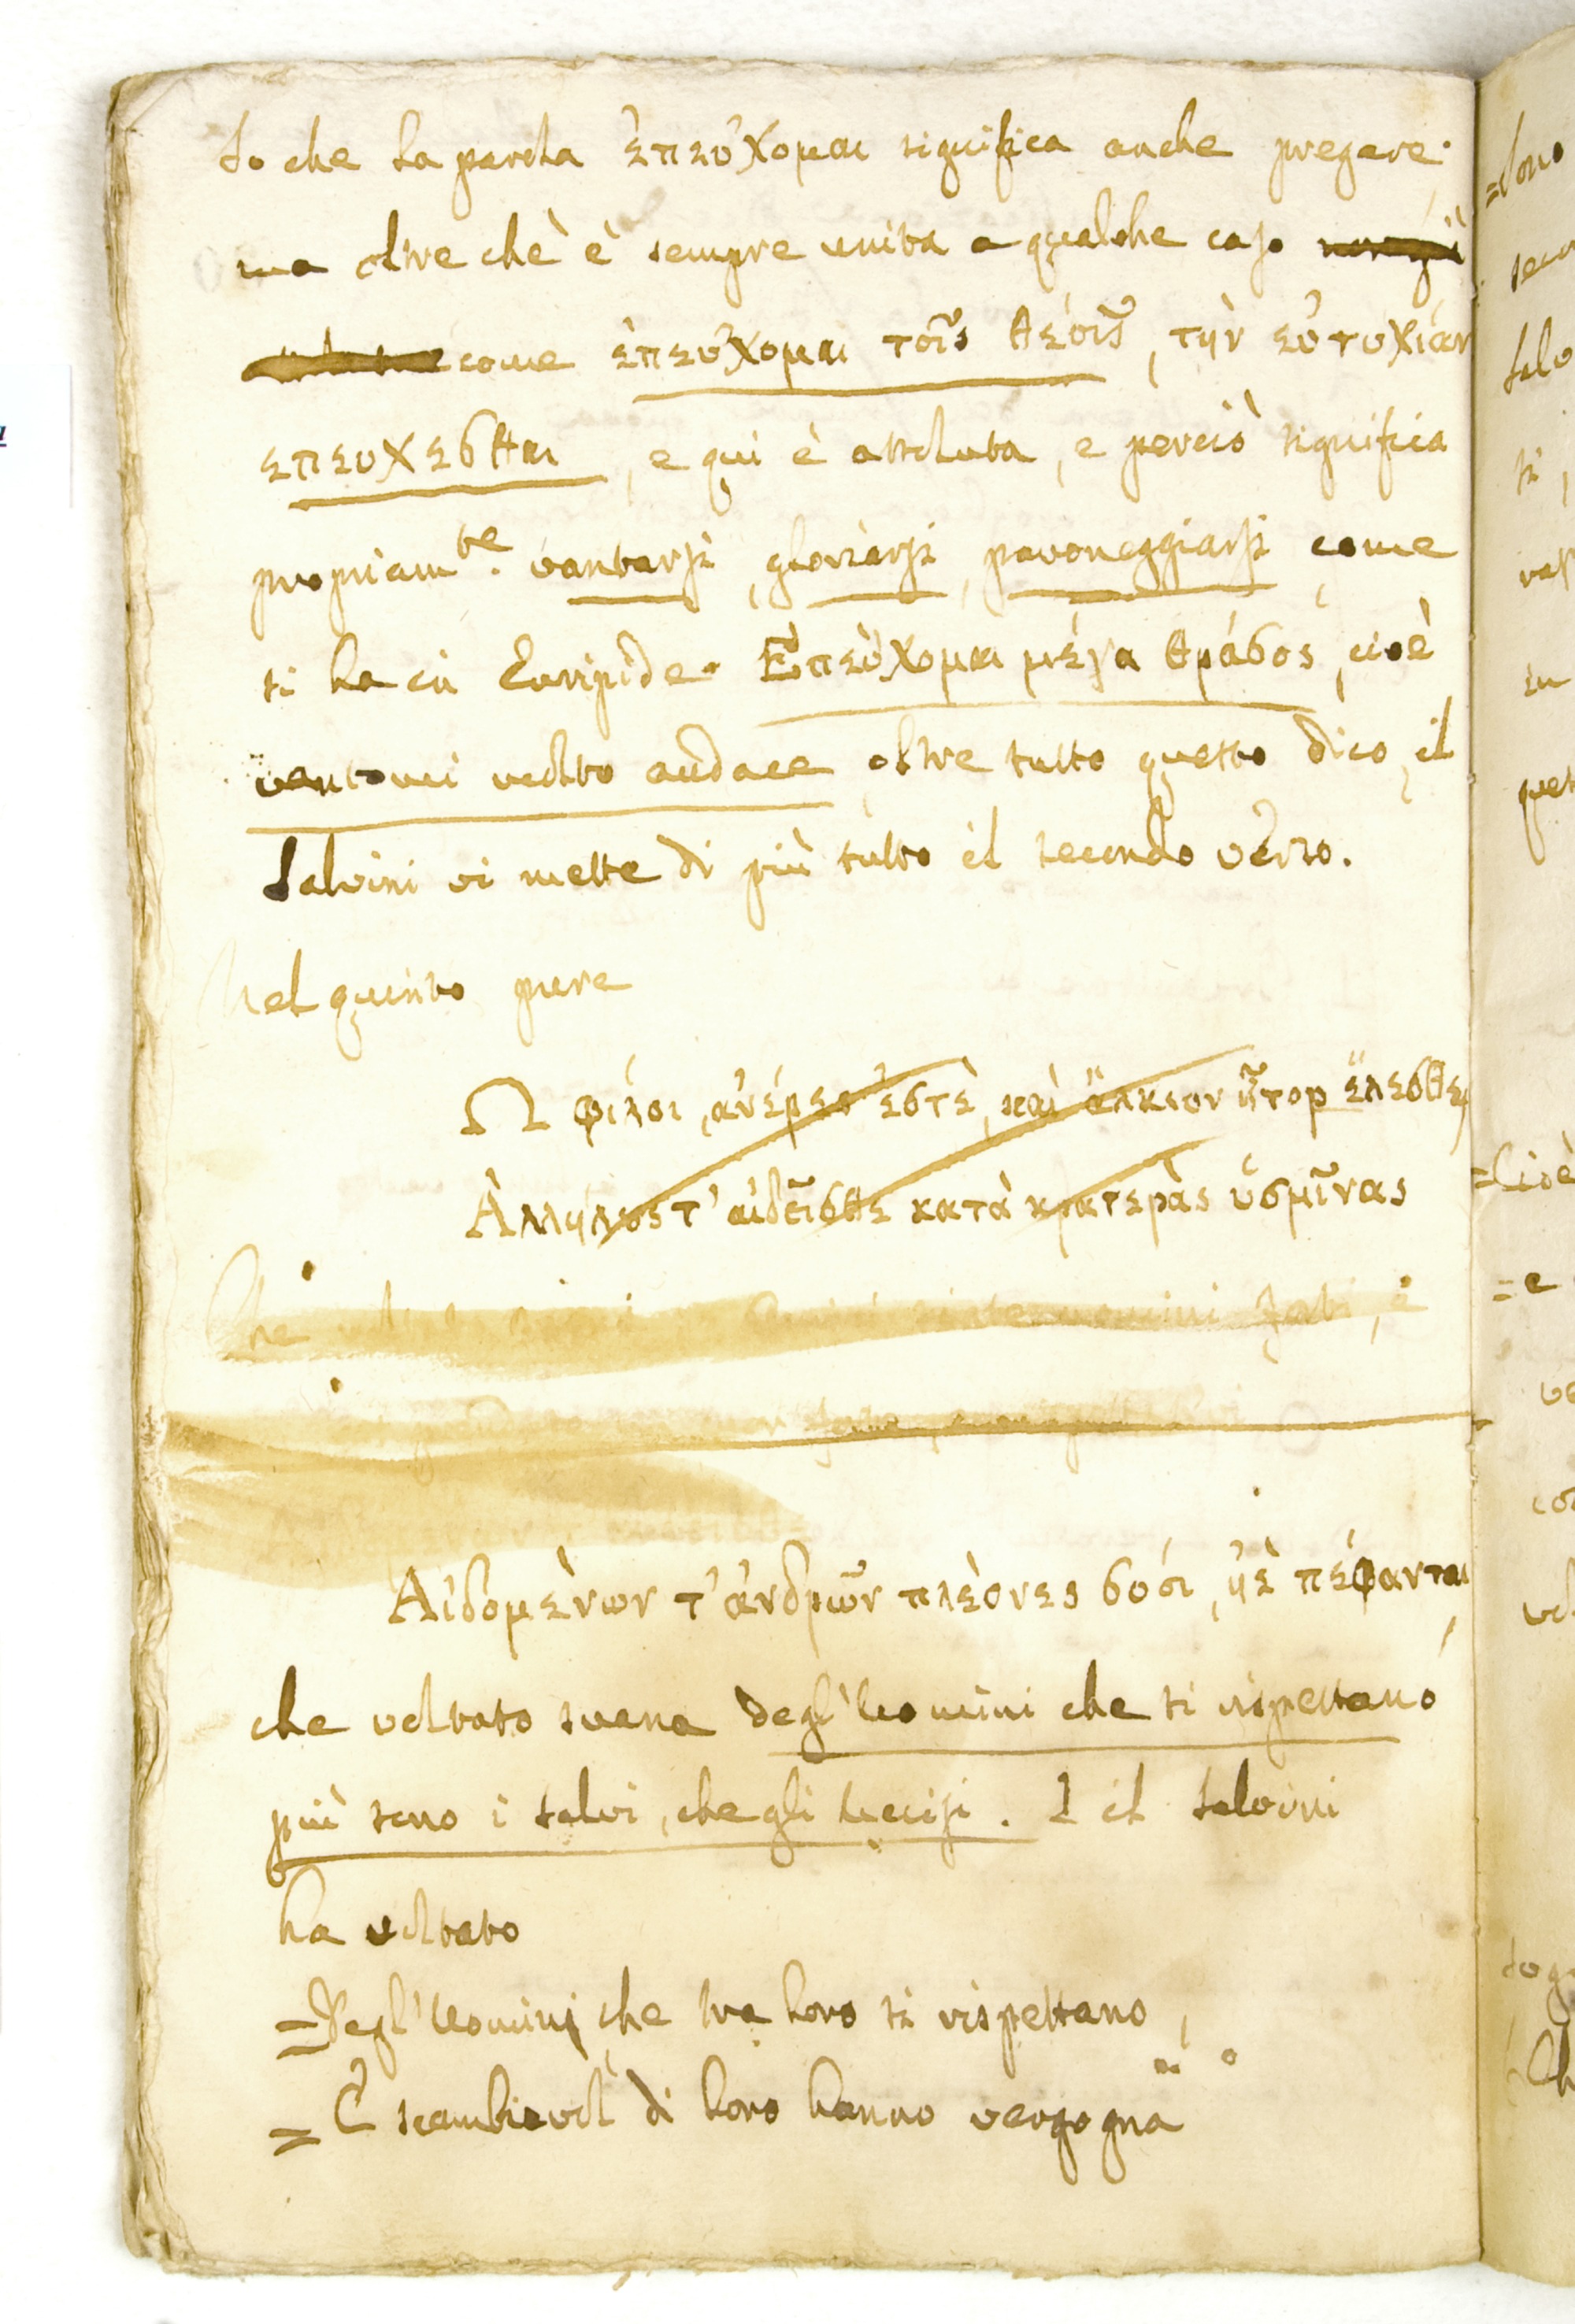 So che la parola ἐπεύχομαι significa anche pregare.
ma oltre chè è sempre unita a qualche caso
come ἐπεύχομαι τοῖς θεόις, τὴν εὐτυχιάν
επευχεσθαι, e qui è assoluta, e perciò significa
propriam.te vantarsi, gloriarsi, pavoneggiarsi, come
si ha in Euripide. Ἐπεύχομαι μέγα θράσος, cioè
vantomi molto audace, oltre tutto questo dico, il
Salvini vi mette di più tutto il secondo verso.
Nel quinto pure
Ω φιλοι, ἀνέρες ἐστὲ, καὶ ἄλκιον ἦτορ ἕλεσθε,
Ἀλλήλους τ' αἰδεῖσθε κατὰ κρατερὰς ὑσμῖνας
Che uomini forti, e
Αἰδομένων τ' ἀνδρῶν πλέονες σόοι, ἠὲ πέφανται,
che voltato suona degl'Uomini che si rispettano
più sono i salvi, che gli Uccisi. E il Salvini
ha voltato
=Degl'Uomini che tra loro si rispettano,
= E scambievol di loro hanno vergogna